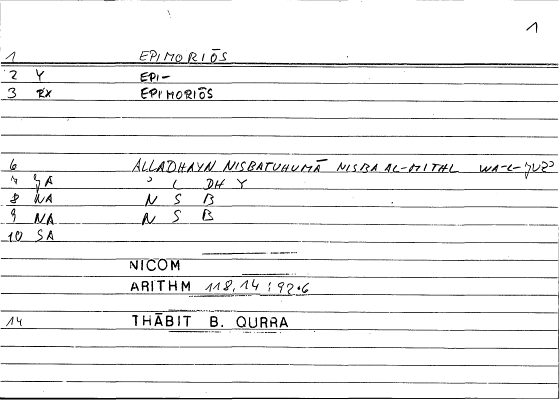 1
1 EPIMORIŌS
2 Y EPI-
3 EX EPIMORIŌS
6 ALLADHAYN NISBATUHUMĀ NISBA AL-MITHL WA-L-ǦUZʾ
7 ǦA ʾ L DH Y
8 NA N S B
9 NA N S B
10 SA
NICOM
ARITHM 118,14 : 92.6
14 THĀBIT B. QURRA